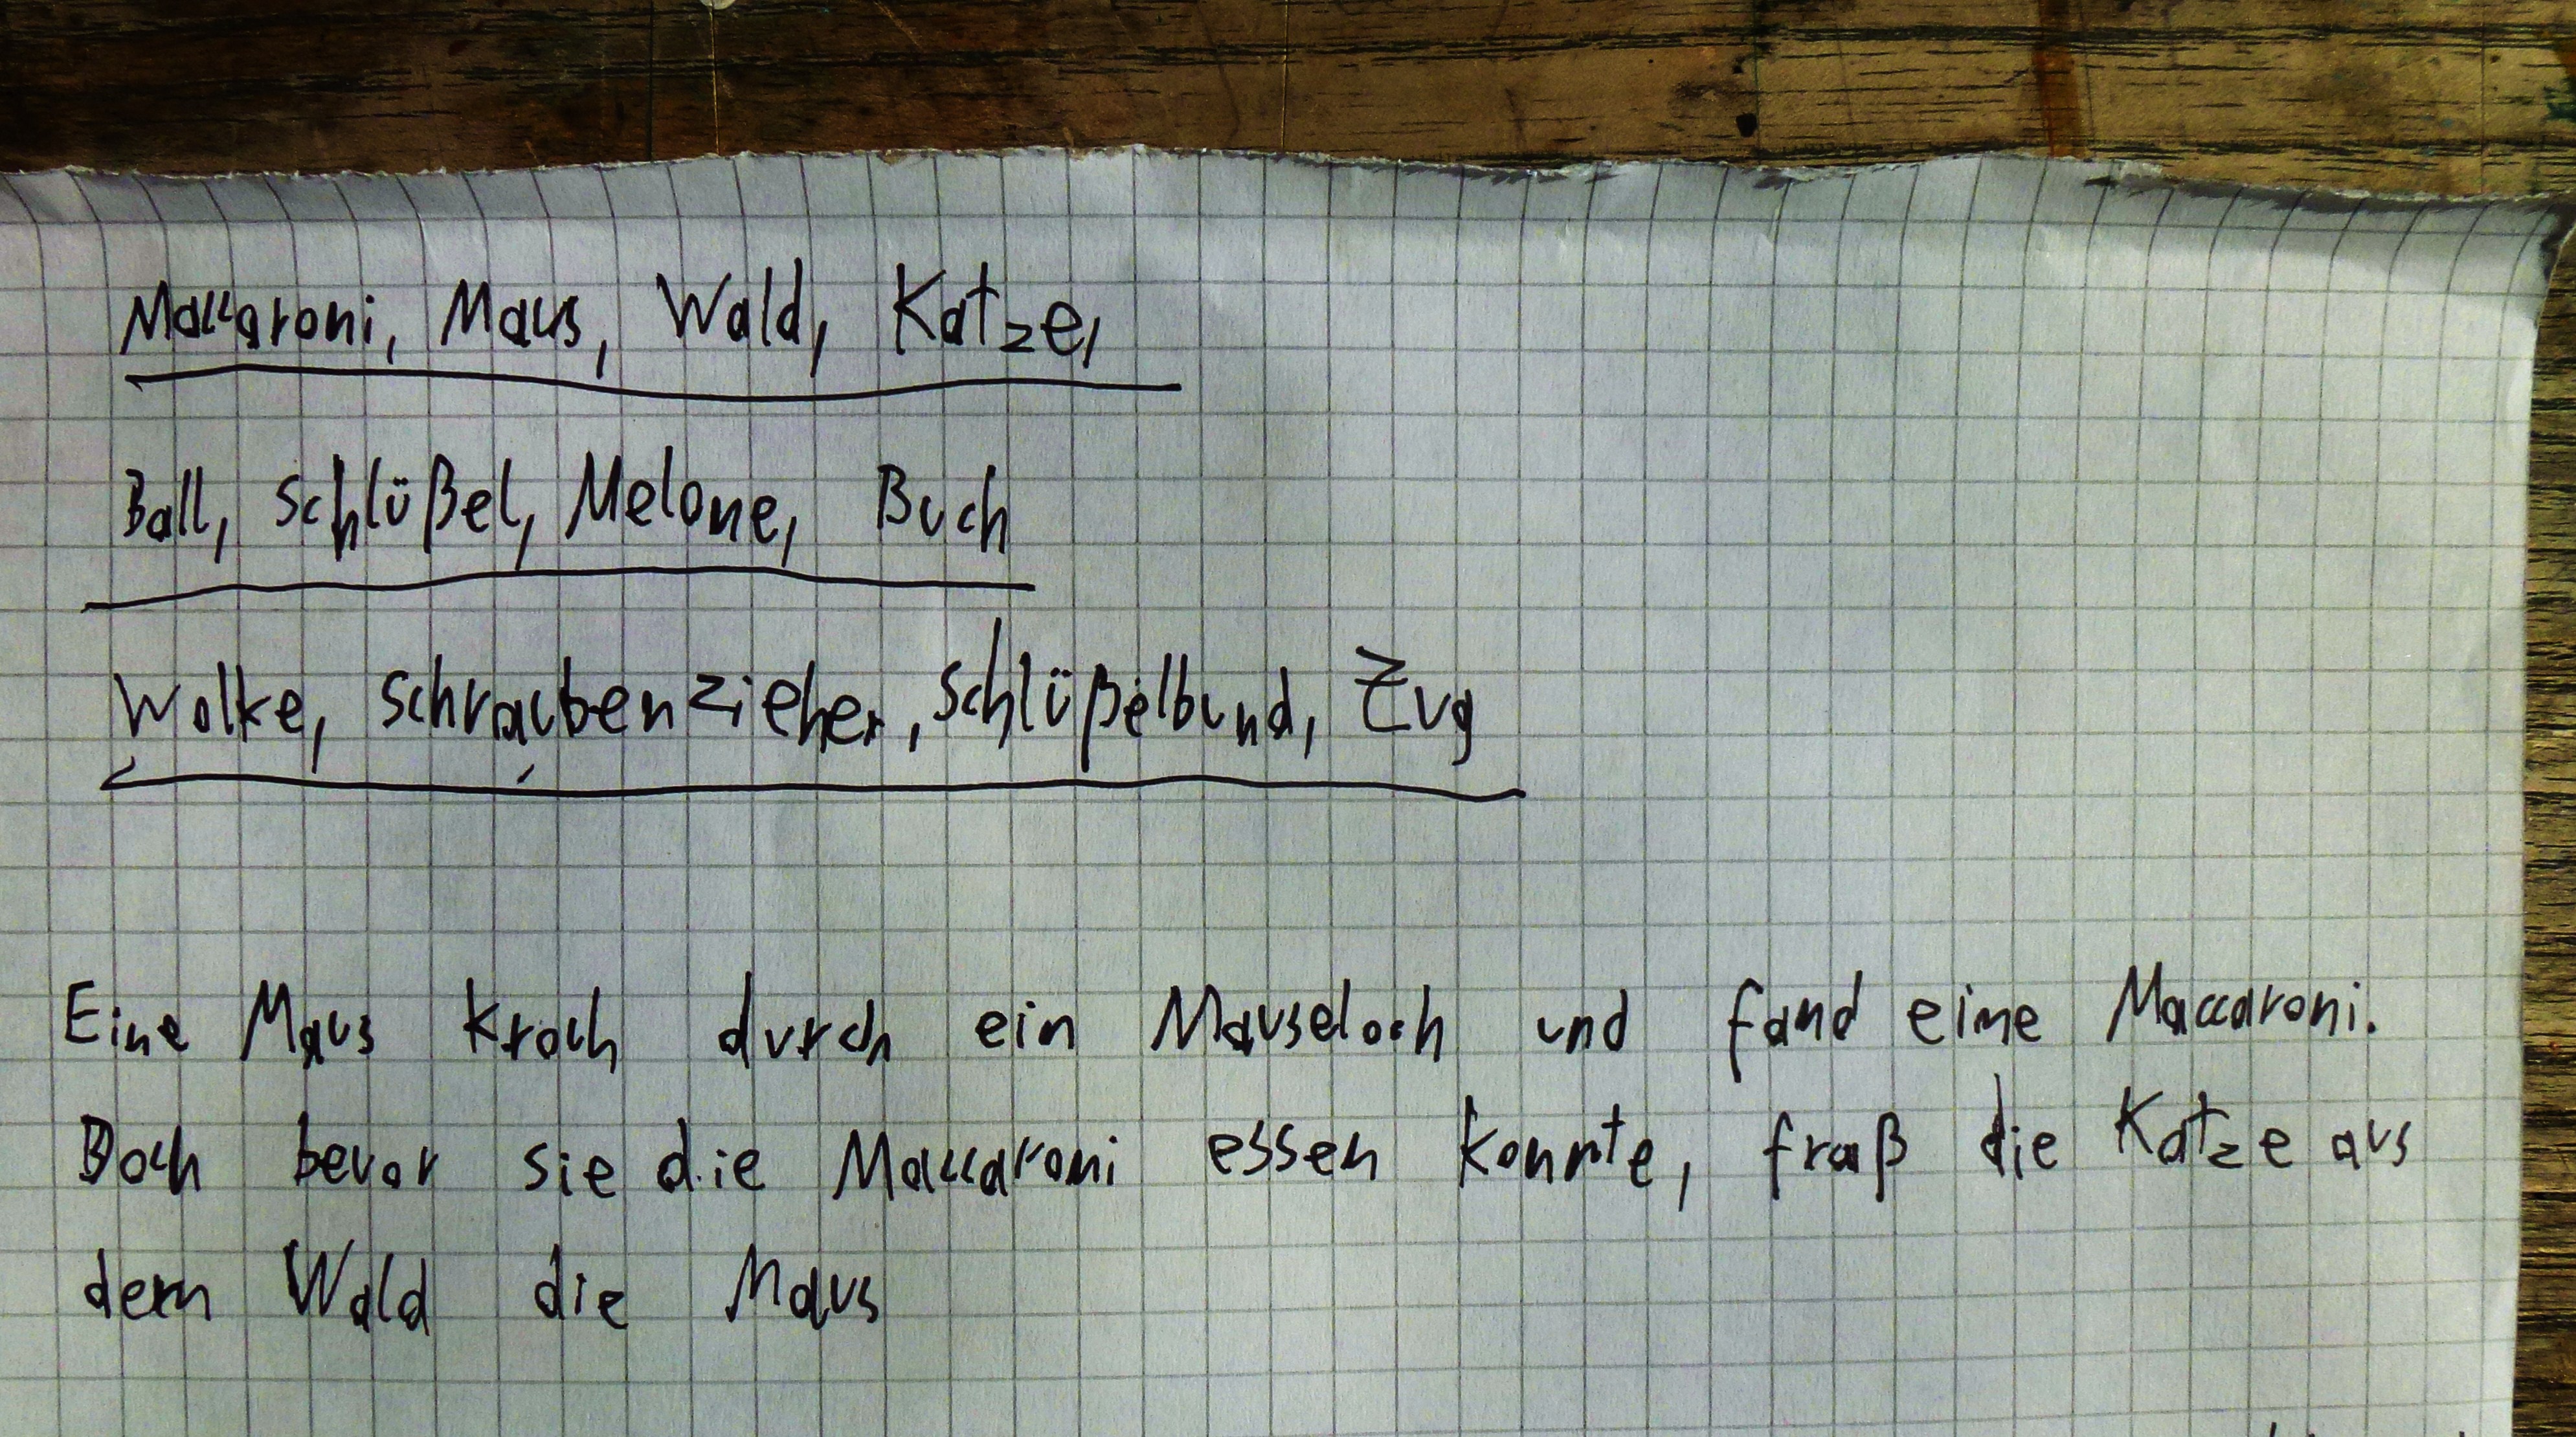 Maccaroni, Maus, Wald, Katze,
Ball, schlüßel, Melone, Buch
Wolke, schraubenzieher, schlüßelbund, Zug
Eine Maus kroch durch ein Mauseloch und fand eine Maccaroni.
Doch bevor sie die Maccaroni essen konnte, fraß die Katze aus
dem Wald die Maus